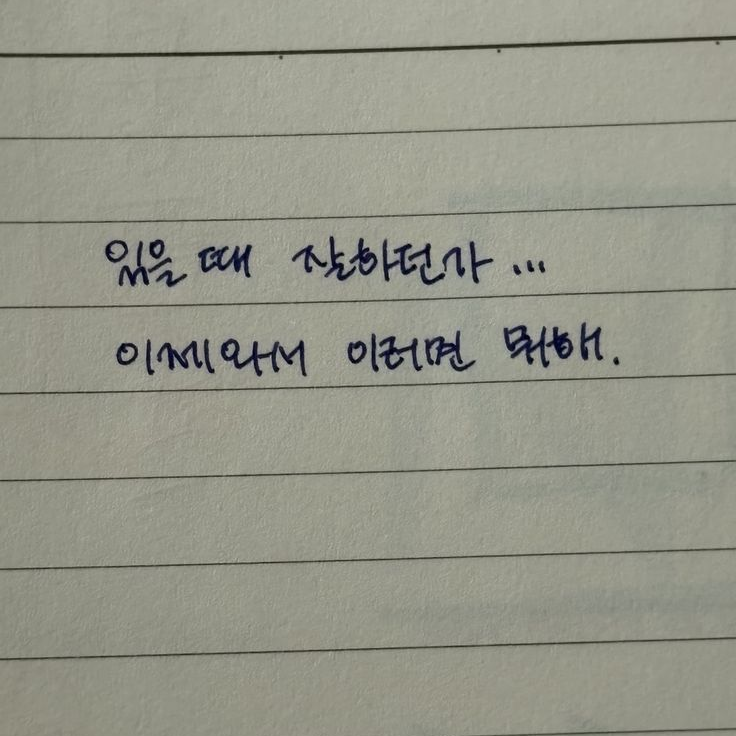 있을 때 잘하던가...
이제와서 이러면 뭐해.